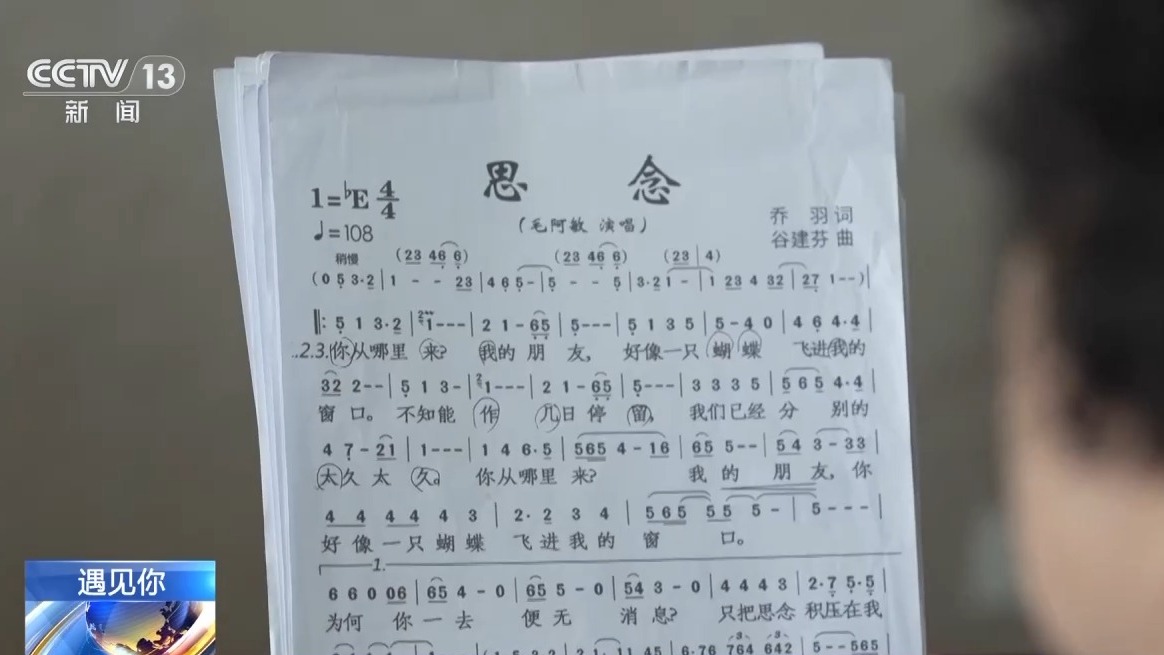 CCTV 13
新闻
思 念
1=♭E 4/4
♩=108
(毛阿敏 演唱)
乔 羽 词
谷建芬 曲
稍慢
(23 46 6) (23 46 6) (23 | 4)
(0 5 3·2 | 1 - - 23 | 4 6 5 - | 5 - - 5 | 3·2 1 - | 1 23 4 32 | 27 1 - -)
‖: 5 1 3·2 | 1 - - - | 2 1 - 65 | 5 - - - | 5 1 3 5 | 5 - 4 0 | 4 6 4·4 |
..2.3.你从哪里 来? 我的 朋 友, 好像一只 蝴 蝶 飞进我的
32 2 - - | 5 1 3 - | 1 - - - | 2 1 - 65 | 5 - - - | 3 3 3 5 | 5 6 5 4·4 |
窗 口。 不知能 作 几日 停 留, 我们已经 分 别的
4 7 - 21 | 1 - - - | 1 4 6·5 | 565 4 - 16 | 65 5 - - | 54 3 - 33 |
太久 太 久。 你从哪里 来? 我 的 朋 友, 你
4 4 4 4 4 3 | 2· 2 3 4 | 5 65 55 5 - | 5 - - - |
好 像 一 只 蝴 蝶 飞 进 我 的 窗 口。
1.
6 6 0 06 | 65 4 - 0 | 65 5 - 0 | 54 3 - 0 | 4 4 4 3 | 2·7 5·5 |
为何 你 一 去 便 无 消 息? 只把思念 积压在我
遇见你